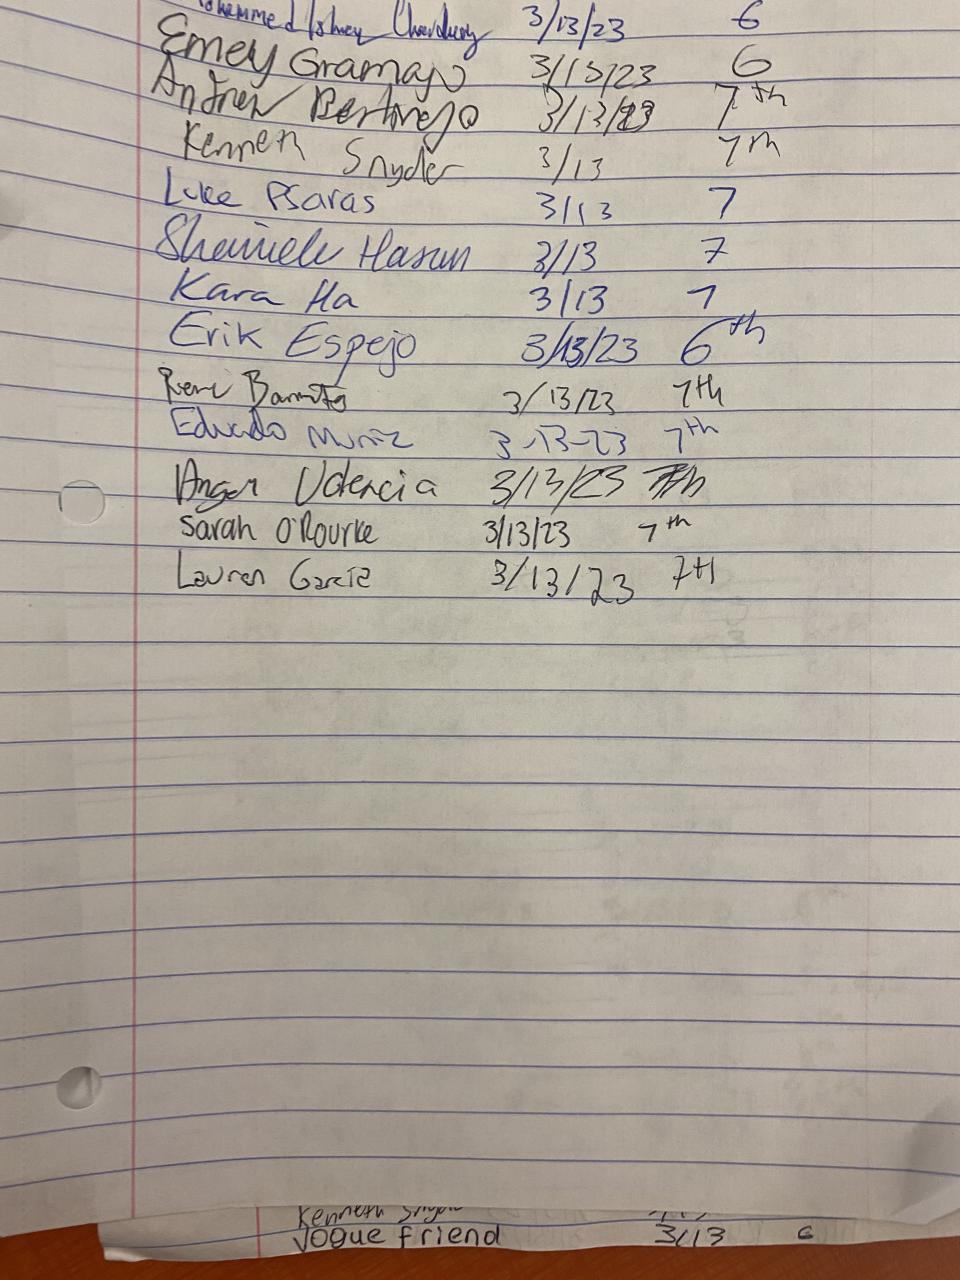 3/13/23 6
Emey Gramajo 3/13/23 6
Andrew 3/13/23 7th
Kenneth Snyder 3/13 7th
Luke Psaras 3/13 7
Hasan 3/13 7
Kara Ha 3/13 7
Erik Espejo 3/13/23 6th
3/13/23 7th
Eduardo Muniz 3-13-23 7th
Valencia 3/13/23 7th
Sarah O'Rourke 3/13/23 7th
Lauren Garcia 3/13/23 7th
Kenneth
Vogue friend 3/13 6